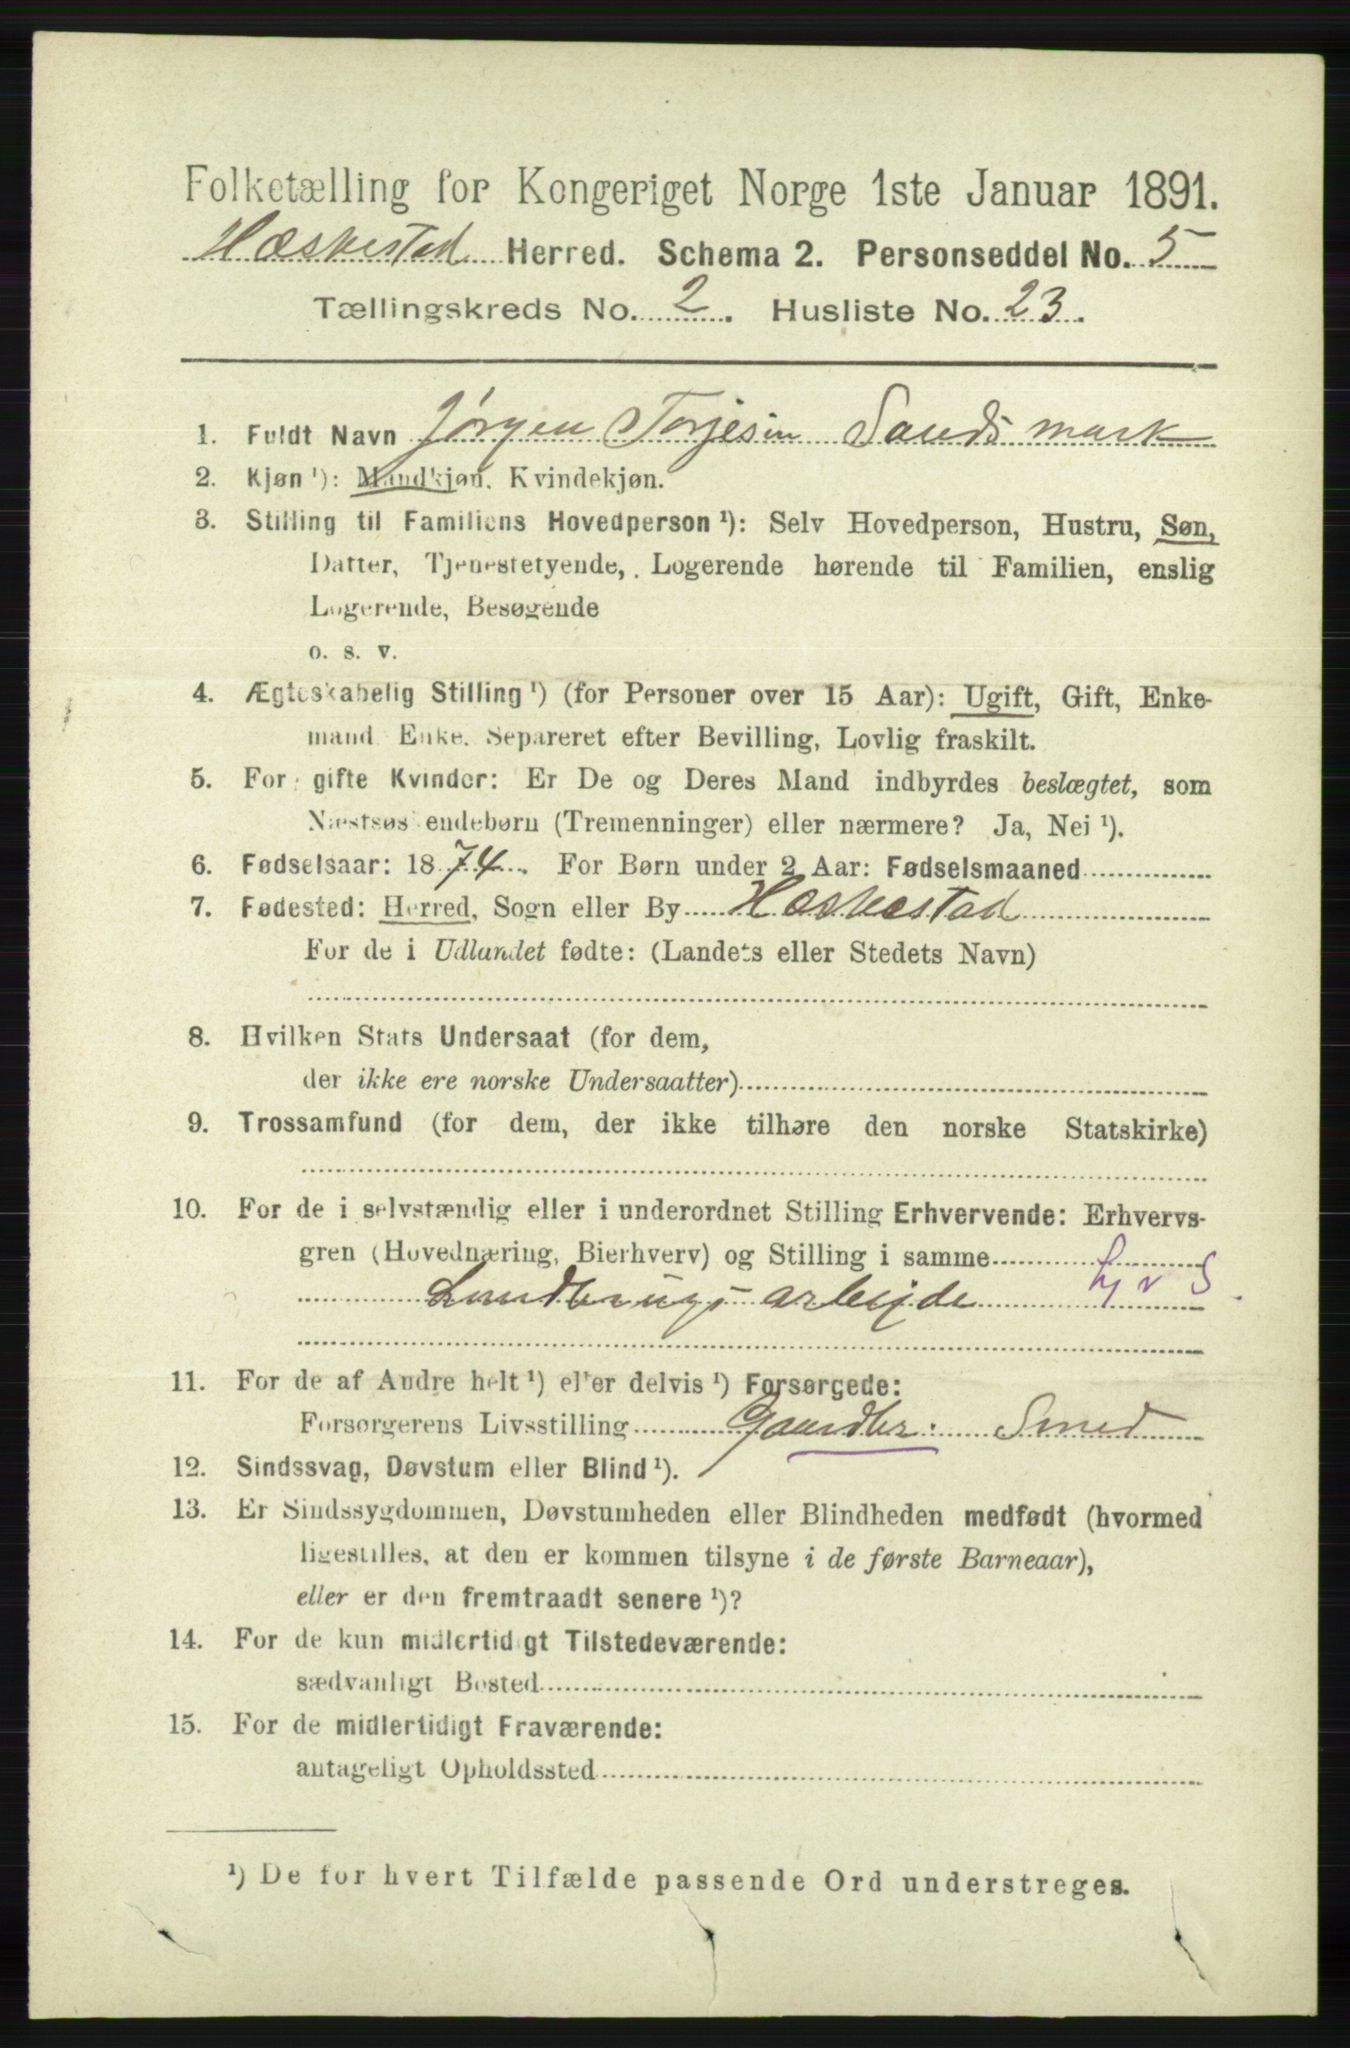 Folketælling for Kongeriget Norge 1ste Januar 1891.
Hæskestad Herred. Schema 2. Personseddel No. 5
Tællingskreds No. 2. Husliste No. 23.
1. Fuldt Navn Jørgen Torjesen Sandsmark
2. Kjøn¹): Mandkjøn. Kvindekjøn.
3. Stilling til Familiens Hovedperson¹): Selv Hovedperson, Hustru, Søn,
Datter, Tjenestetyende, Logerende hørende til Familien, enslig
Logerende, Besøgende
o. s. v.
4. Ægteskabelig Stilling¹) (for Personer over 15 Aar): Ugift, Gift, Enke-
mand, Enke. Separeret efter Bevilling, Lovlig fraskilt.
5. For gifte Kvinder: Er De og Deres Mand indbyrdes beslægtet, som
Næstsøskendebørn (Tremenninger) eller nærmere? Ja, Nei¹).
6. Fødselsaar: 1874. For Børn under 2 Aar: Fødselsmaaned
7. Fødested: Herred, Sogn eller By Hæskestad
For de i Udlandet fødte: (Landets eller Stedets Navn)
8. Hvilken Stats Undersaat (for dem,
der ikke ere norske Undersaatter)
9. Trossamfund (for dem, der ikke tilhøre den norske Statskirke)
10. For de i selvstændig eller i underordnet Stilling Erhvervende: Erhvervs-
gren (Hovednæring, Bierhverv) og Stilling i samme
Landbrugs arbejde
11. For de af Andre helt¹) eller delvis¹) Forsørgede:
Forsørgerens Livsstilling Gaardbr. Smed
12. Sindssvag, Døvstum eller Blind¹).
13. Er Sindssygdommen, Døvstumheden eller Blindheden medfødt (hvormed
ligestilles, at den er kommen tilsyne i de første Barneaar),
eller er den fremtraadt senere¹)?
14. For de kun midlertidigt Tilstedeværende:
sædvanligt Bosted
15. For de midlertidigt Fraværende:
antageligt Opholdssted
¹) De for hvert Tilfælde passende Ord understreges.